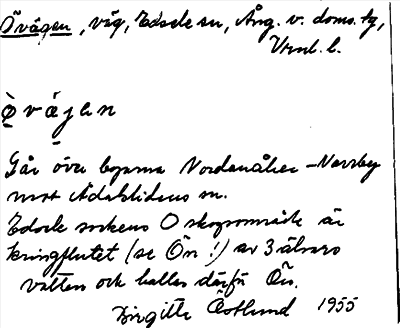 Övägen, väg, Edsele sn, Ång. v. doms.tg,
Vrnl. l.
Ö v ä j e n
Går över byarna Nordanåker – Narsby
mot Ådalslidens sn.
Edsele sockens Ö skogsområde är
kringflutet (se Ön!) av 3 älvars
vatten och kallas därför Ön.
Birgitta Östlund 1955